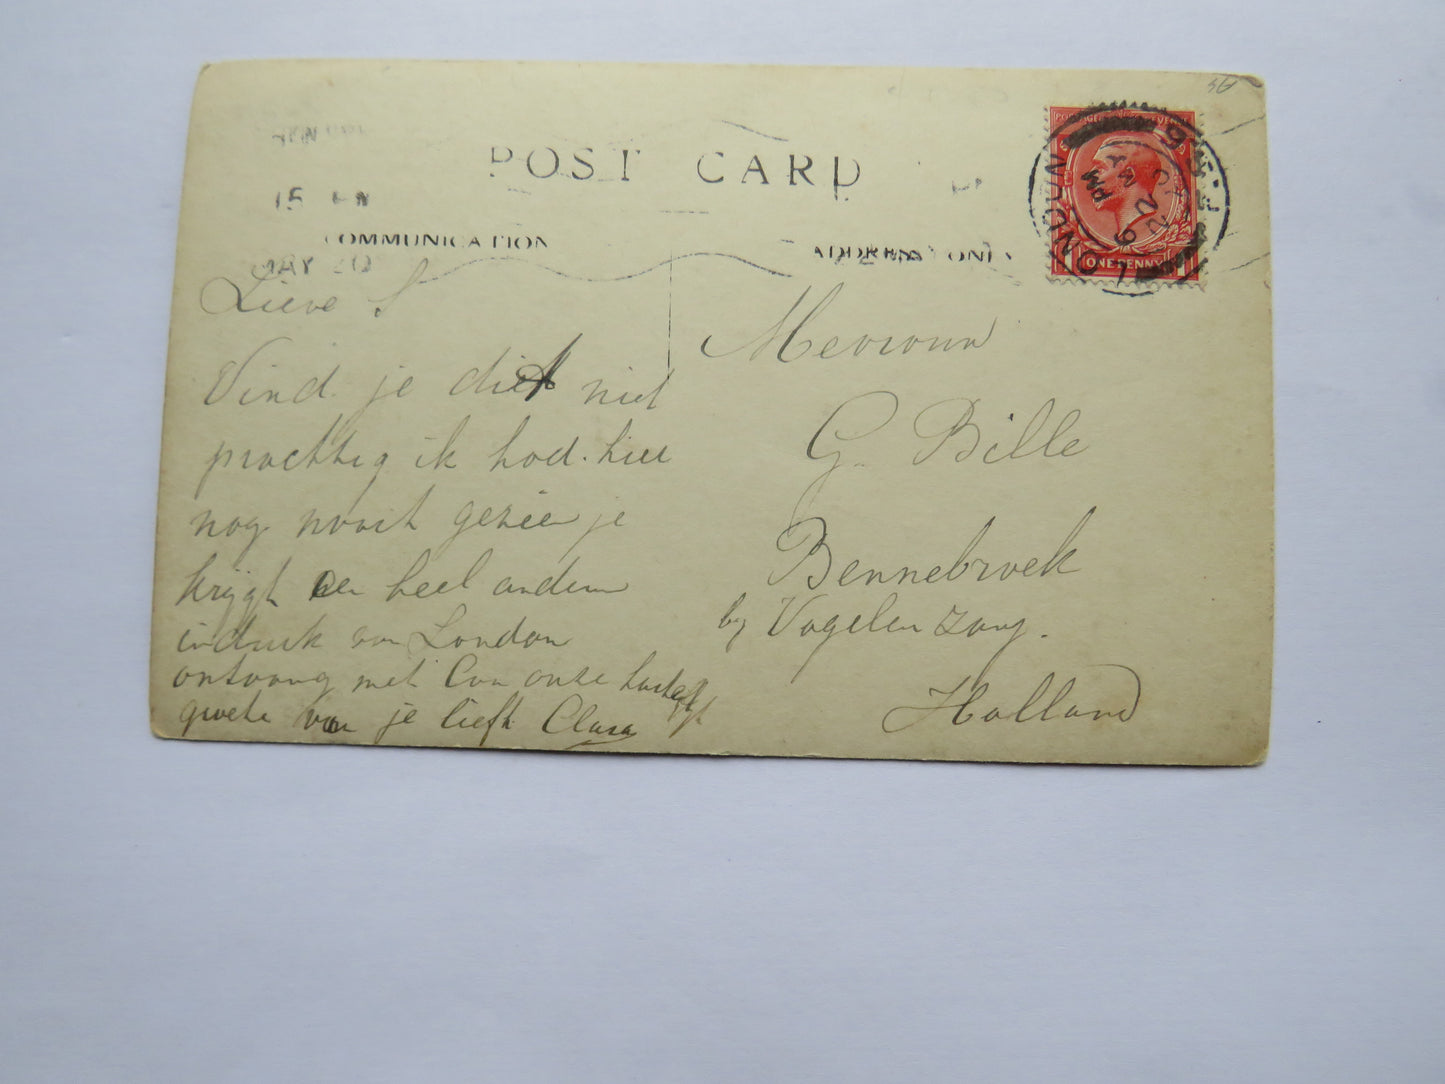 POST CARD
COMMUNICATION
ADDRESS ONLY
15 PM
MAY 20
LONDON
PM
ONE PENNY
Lieve S
Vind je dit niet
prachtig ik had hier
nog nooit gezien je
krijgt een heel anderen
indruk van London
ontvang met Con onze hartelijke
groete van je liefh Clara
Mevrouw
G. Bille
Bennebroek
by Vogelenzang.
Holland